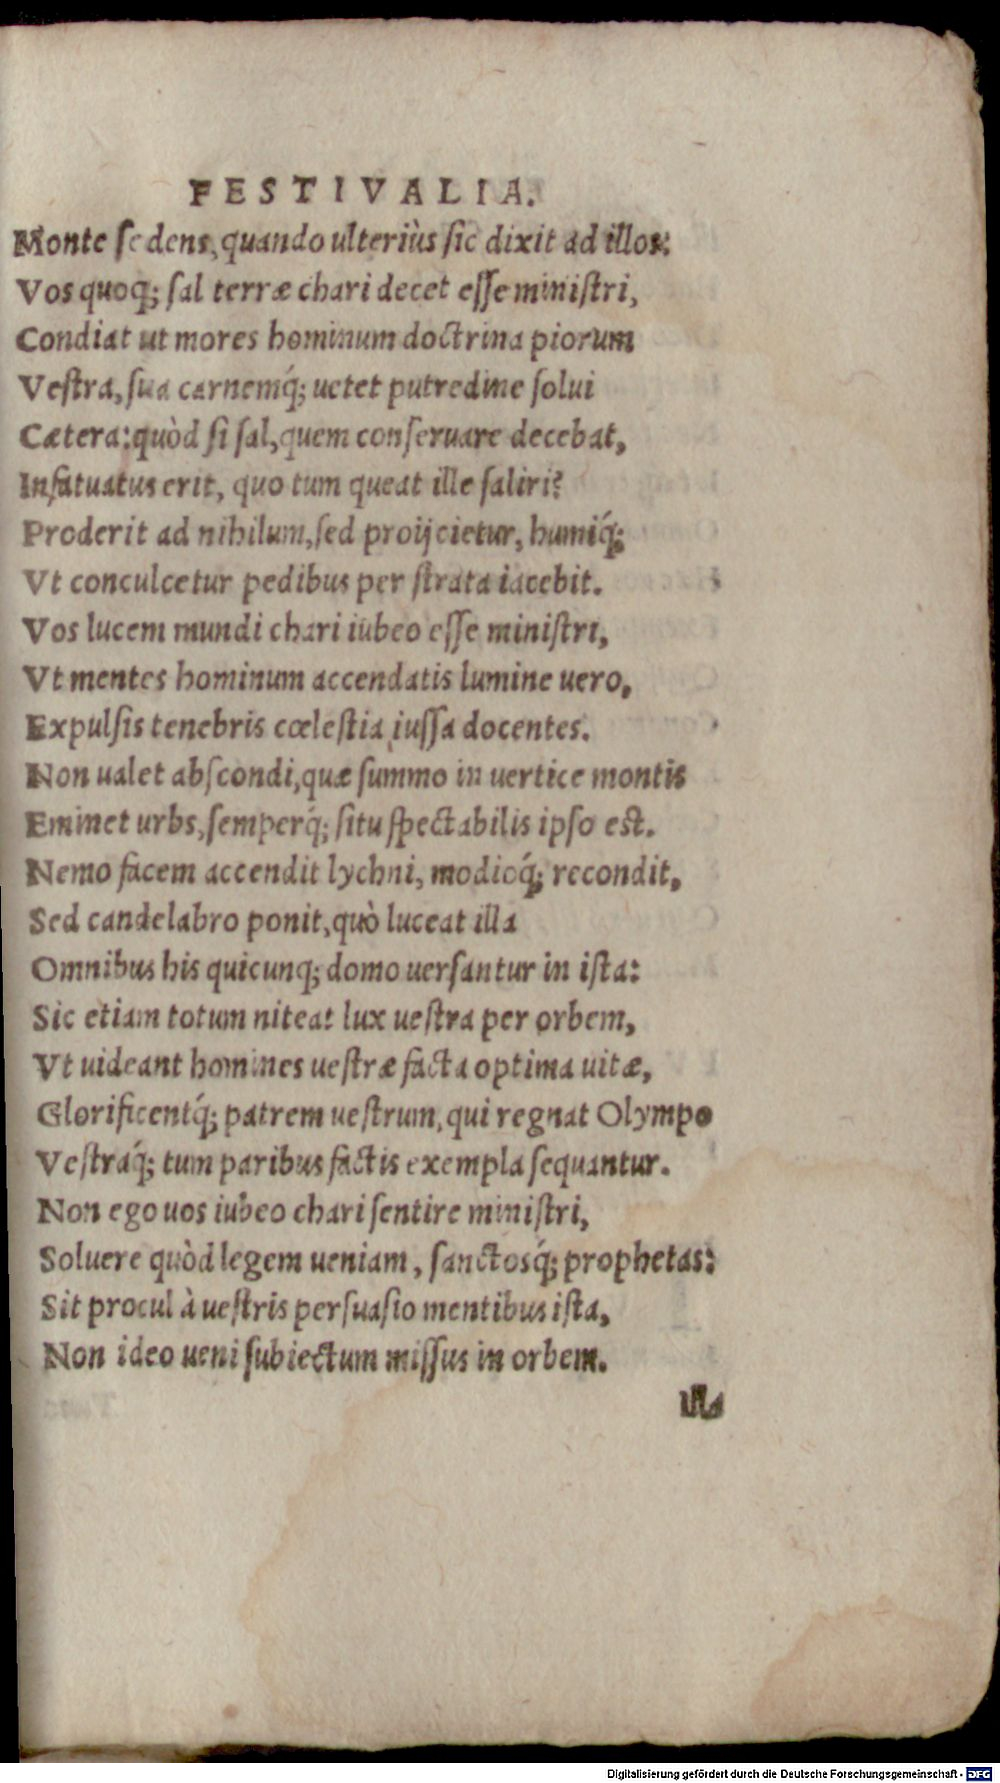 FESTIVALIA.
Monte sedens, quando ulteriùs sic dixit ad illos:
Vos quoq; sal terræ chari decet esse ministri,
Condiat ut mores hominum doctrina piorum
Vestra, sua carnemq́; uetet putredine solui
Cætera: quòd si sal, quem conseruare decebat,
Infatuatus erit, quo tum queat ille saliri?
Proderit ad nihilum, sed proijcietur, humiq́;
Vt conculcetur pedibus per strata iacebit.
Vos lucem mundi chari iubeo esse ministri,
Vt mentes hominum accendatis lumine uero,
Expulsis tenebris cœlestia iussa docentes.
Non ualet abscondi, quæ summo in uertice montis
Eminet urbs, semperq́; situ spectabilis ipso est.
Nemo facem accendit lychni, modioq́; recondit,
Sed candelabro ponit, quò luceat illa
Omnibus his quicunq; domo uersantur in ista:
Sic etiam totum niteat lux uestra per orbem,
Vt uideant homines uestræ facta optima uitæ,
Glorificentq́; patrem uestrum, qui regnat Olympo
Vestraq́; tum paribus factis exempla sequantur.
Non ego uos iubeo chari sentire ministri,
Soluere quòd legem ueniam, sanctosq́; prophetas:
Sit procul à uestris persuasio mentibus ista,
Non ideo ueni subiectum missus in orbem.
Digitalisierung gefördert durch die Deutsche Forschungsgemeinschaft - DFG